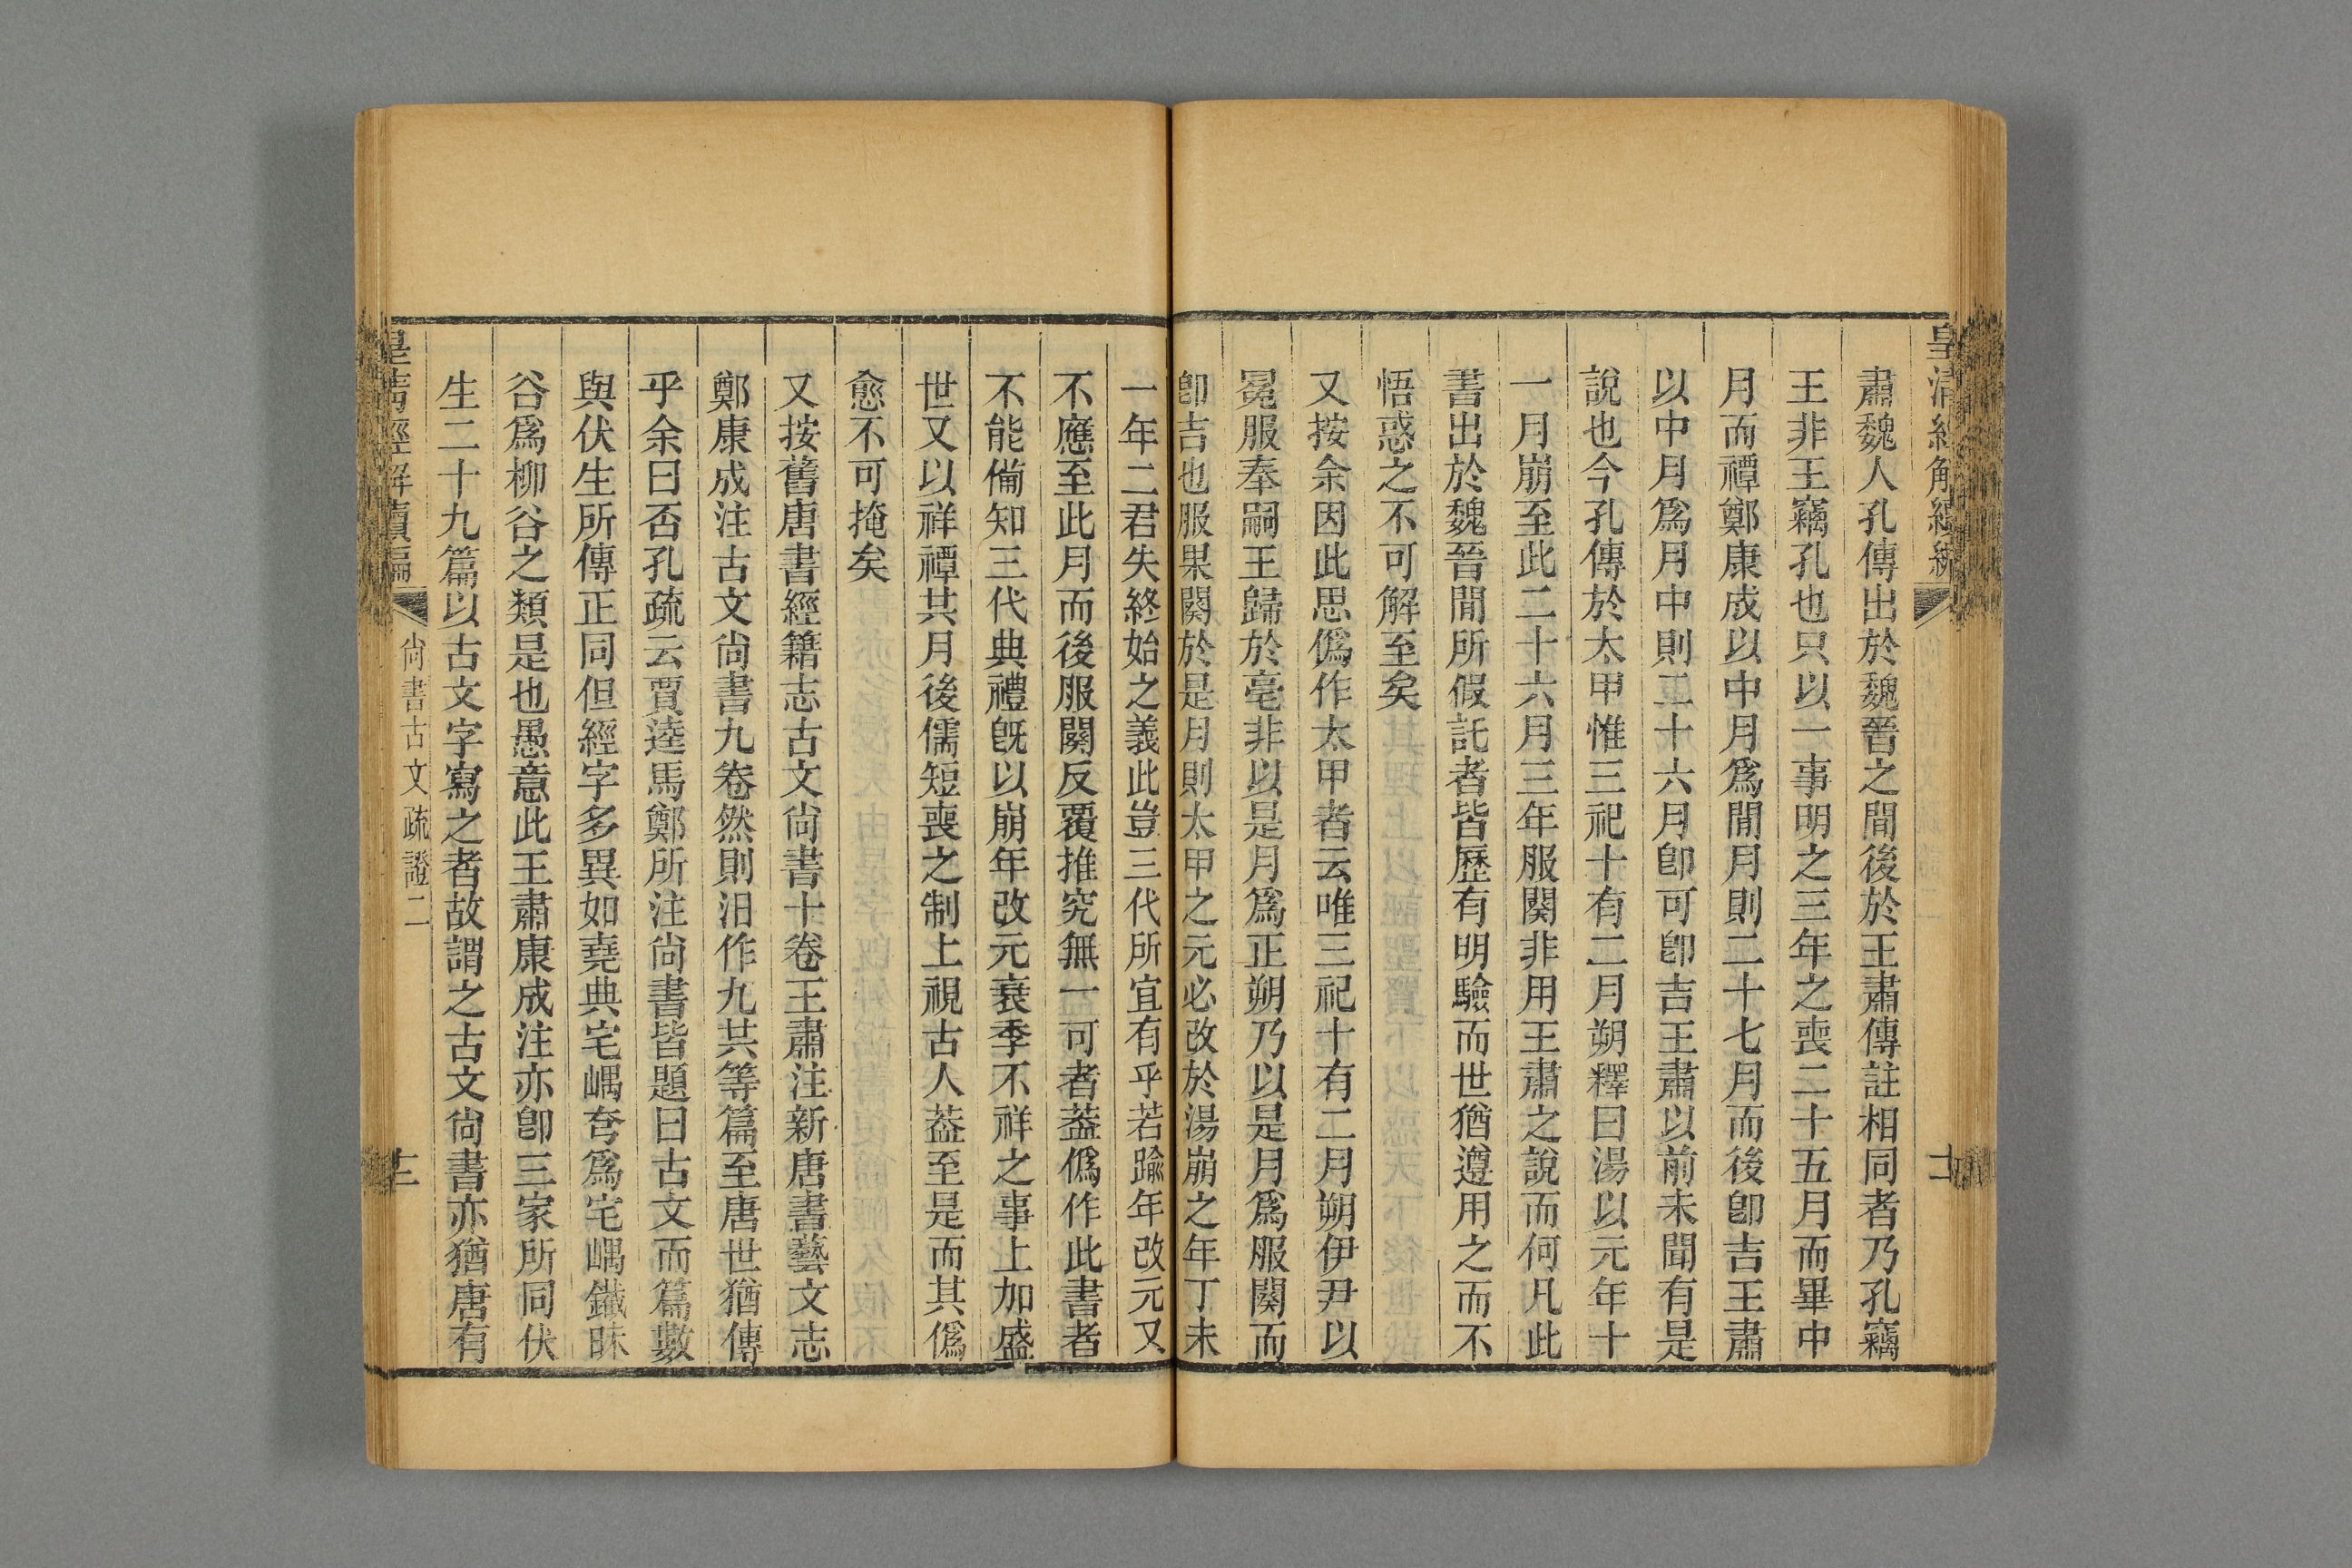 皇清經解續編
肅魏人孔傳出於魏晉之間後於王肅傳註相同者乃孔竊
王非王竊孔也只以一事明之三年之喪二十五月而畢中
月而禫鄭康成以中月爲閒月則二十七月而後卽吉王肅
以中月爲月中則二十六月卽可卽吉王肅以前未聞有是
說也今孔傳於太甲惟三祀十有二月朔釋曰湯以元年十
一月崩至此二十六月三年服闋非用王肅之說而何凡此
書出於魏晉閒所假託者皆歷有明驗而世猶遵用之而不
悟惑之不可解至矣
又按余因此思僞作太甲者云唯三祀十有二月朔伊尹以
冕服奉嗣王歸於亳非以是月爲正朔乃以是月爲服闋而
卽吉也服果闋於是月則太甲之元必改於湯崩之年丁未
一年二君失終始之義此豈三代所宜有乎若踰年改元又
不應至此月而後服闋反覆推究無一可者葢僞作此書者
不能備知三代典禮旣以崩年改元衰季不祥之事上加盛
世又以祥禫其月後儒短喪之制上視古人葢至是而其僞
愈不可掩矣
又按舊唐書經籍志古文尚書十卷王肅注新唐書藝文志
鄭康成注古文尚書九卷然則汨作九共等篇至唐世猶傳
乎余曰否孔疏云賈逵馬鄭所注尚書皆題曰古文而篇數
與伏生所傳正同但經字多異如堯典宅嵎夷爲宅嵎鐵昧
谷爲柳谷之類是也愚意此王肅康成注亦卽三家所同伏
生二十九篇以古文字寫之者故謂之古文尚書亦猶唐有
皇清經解續編
尚書古文疏證二